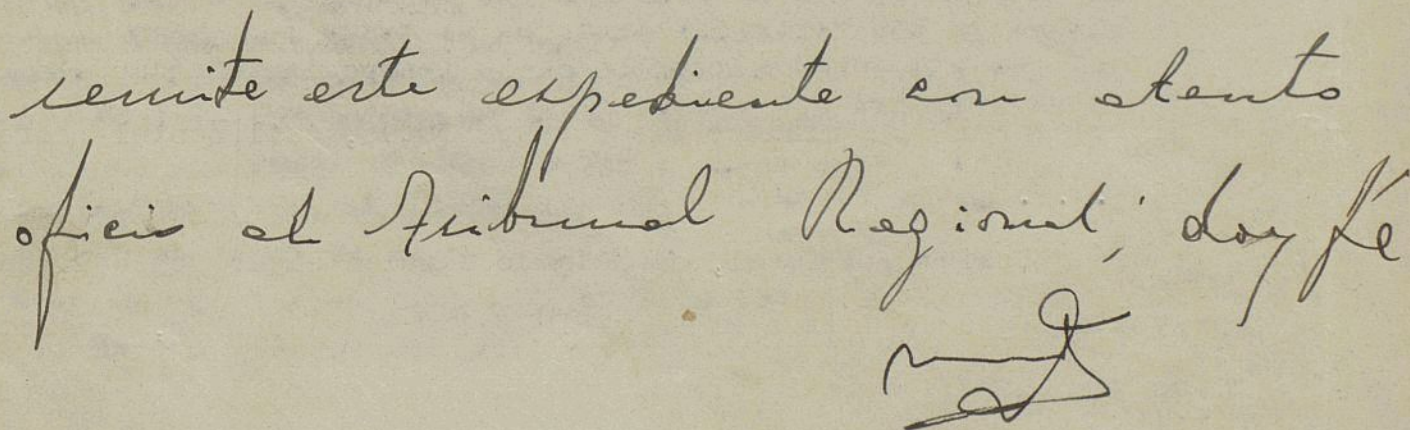 remite este expediente con atento
oficio al Tribunal Regional; doy fé